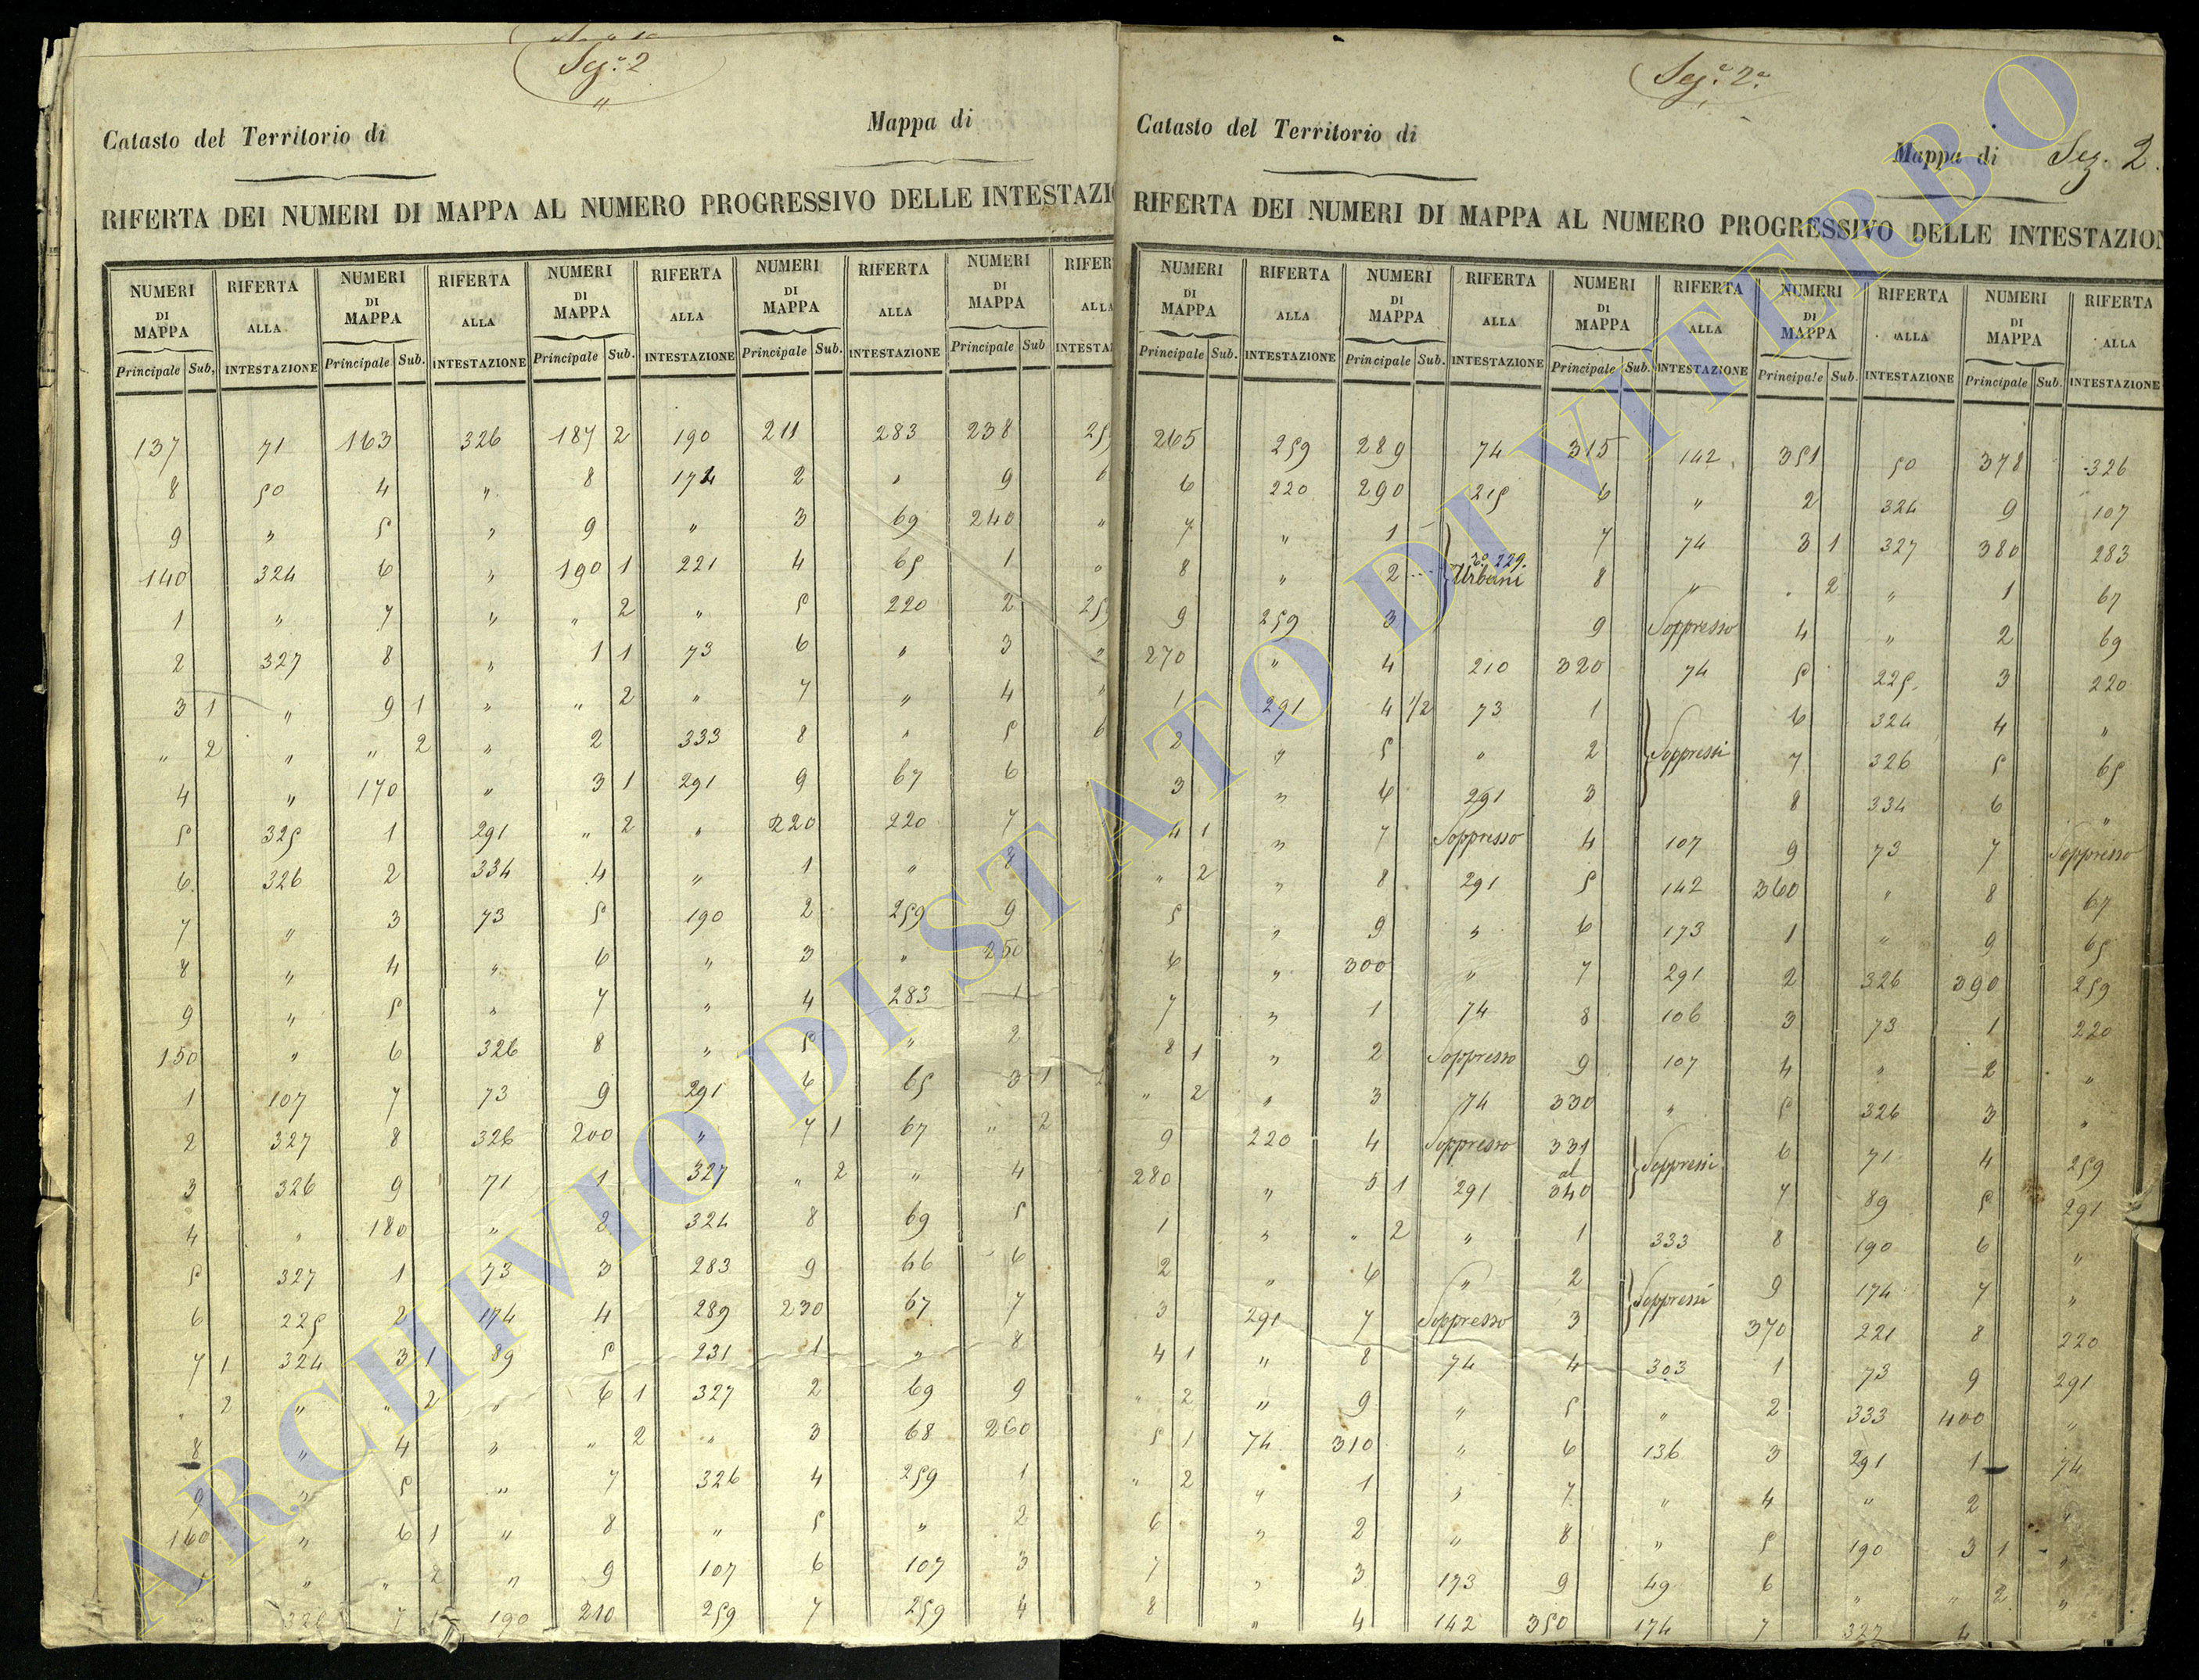 Sez.e 2
Catasto del Territorio di Mappa di
RIFERTA DEI NUMERI DI MAPPA AL NUMERO PROGRESSIVO DELLE INTESTAZI
NUMERI RIFERTA NUMERI RIFERTA NUMERI RIFERTA NUMERI RIFERTA NUMERI RIFER
DI ALLA DI ALLA DI ALLA DI ALLA DI ALLA
MAPPA MAPPA MAPPA MAPPA MAPPA
Principale Sub. INTESTAZIONE Principale Sub. INTESTAZIONE Principale Sub. INTESTAZIONE Principale Sub. INTESTAZIONE Principale Sub INTESTA
137 71 163 326 187 2 190 211 283 238 25
8 50 4 " 8 174 2 " 9 6
9 " 5 " 9 " 3 69 240 "
140 324 6 " 190 1 221 4 65 1 "
1 " 7 " " 2 " 5 220 2 25
2 327 8 " 1 1 73 6 " 3 "
3 1 " 9 1 " " 2 " 7 " 4 "
" 2 " " 2 " 2 333 8 " 5 6
4 " 170 " 3 1 291 9 67 6
5 325 1 291 " 2 " 220 220 7
6 326 2 334 4 " 1 " 8
7 " 3 73 5 190 2 259 9
8 " 4 " 6 " 3 " 250
9 " 5 " 7 " 4 283 1
150 " 6 326 8 " 5 " 2
1 107 7 73 9 291 6 65 3 1
2 327 8 326 200 " 7 1 67 " 2
3 326 9 71 1 327 " 2 " 4
4 " 180 " 2 324 8 69 5
5 327 1 73 3 283 9 66 6
6 225 2 174 4 289 230 67 7
7 1 324 3 1 89 5 231 1 " 8
" 2 " " 2 " 6 1 327 2 69 9
8 " 4 " " 2 " 3 68 260
9 " 5 " 7 326 4 259 1
160 " 6 1 " 8 " 5 " 2
1 " " 2 " 9 107 6 107 3
2 326 7 1 190 210 259 7 259 4
Sez.e 2a
Catasto del Territorio di Mappa di Sez. 2.
RIFERTA DEI NUMERI DI MAPPA AL NUMERO PROGRESSIVO DELLE INTESTAZION
NUMERI RIFERTA NUMERI RIFERTA NUMERI RIFERTA NUMERI RIFERTA NUMERI RIFERTA
DI ALLA DI ALLA DI ALLA DI ALLA DI ALLA
MAPPA MAPPA MAPPA MAPPA MAPPA
Principale Sub. INTESTAZIONE Principale Sub INTESTAZIONE Principale Sub. INTESTAZIONE Principale Sub. INTESTAZIONE Principale Sub. INTESTAZIONE
265 259 289 74 315 142 351 50 378 326
6 220 290 215 6 " 2 324 9 107
7 " 1 7 74 3 1 327 380 283
8 " 2 no 229. Urbani 8 " " 2 " 1 67
9 259 3 9 Soppresso 4 " 2 69
270 " 4 210 320 74 5 225 3 220
1 291 4 1/2 73 1 6 324 4 "
2 " 5 " 2 Soppressi 7 326 5 65
3 " 6 291 3 8 334 6 "
4 1 " 7 Soppresso 4 107 9 73 7 Soppresso
" 2 " 8 291 5 142 360 " 8 67
5 " 9 " 6 173 1 " 9 65
6 " 300 " 7 291 2 326 390 259
7 " 1 74 8 106 3 73 1 220
8 1 " 2 Soppresso 9 107 4 " 2 "
" 2 " 3 74 330 " 5 326 3 "
9 220 4 Soppresso 331 al Soppressi 6 71 4 259
280 " 5 1 291 340 7 89 5 291
1 " " 2 " 1 333 8 190 6 "
2 " 6 " 2 Soppressi 9 174 7 "
3 291 7 Soppresso 3 370 221 8 220
4 1 " 8 74 4 303 1 73 9 291
" 2 " 9 " 5 " 2 333 400 "
5 1 74 310 " 6 136 3 291 1 74
" 2 " 1 " 7 " 4 " 2 "
6 " 2 " 8 " 5 190 3 1 "
7 " 3 173 9 49 6 " " 2 "
8 " 4 142 350 174 7 327 4
ARCHIVIO DI STATO DI VITERBO